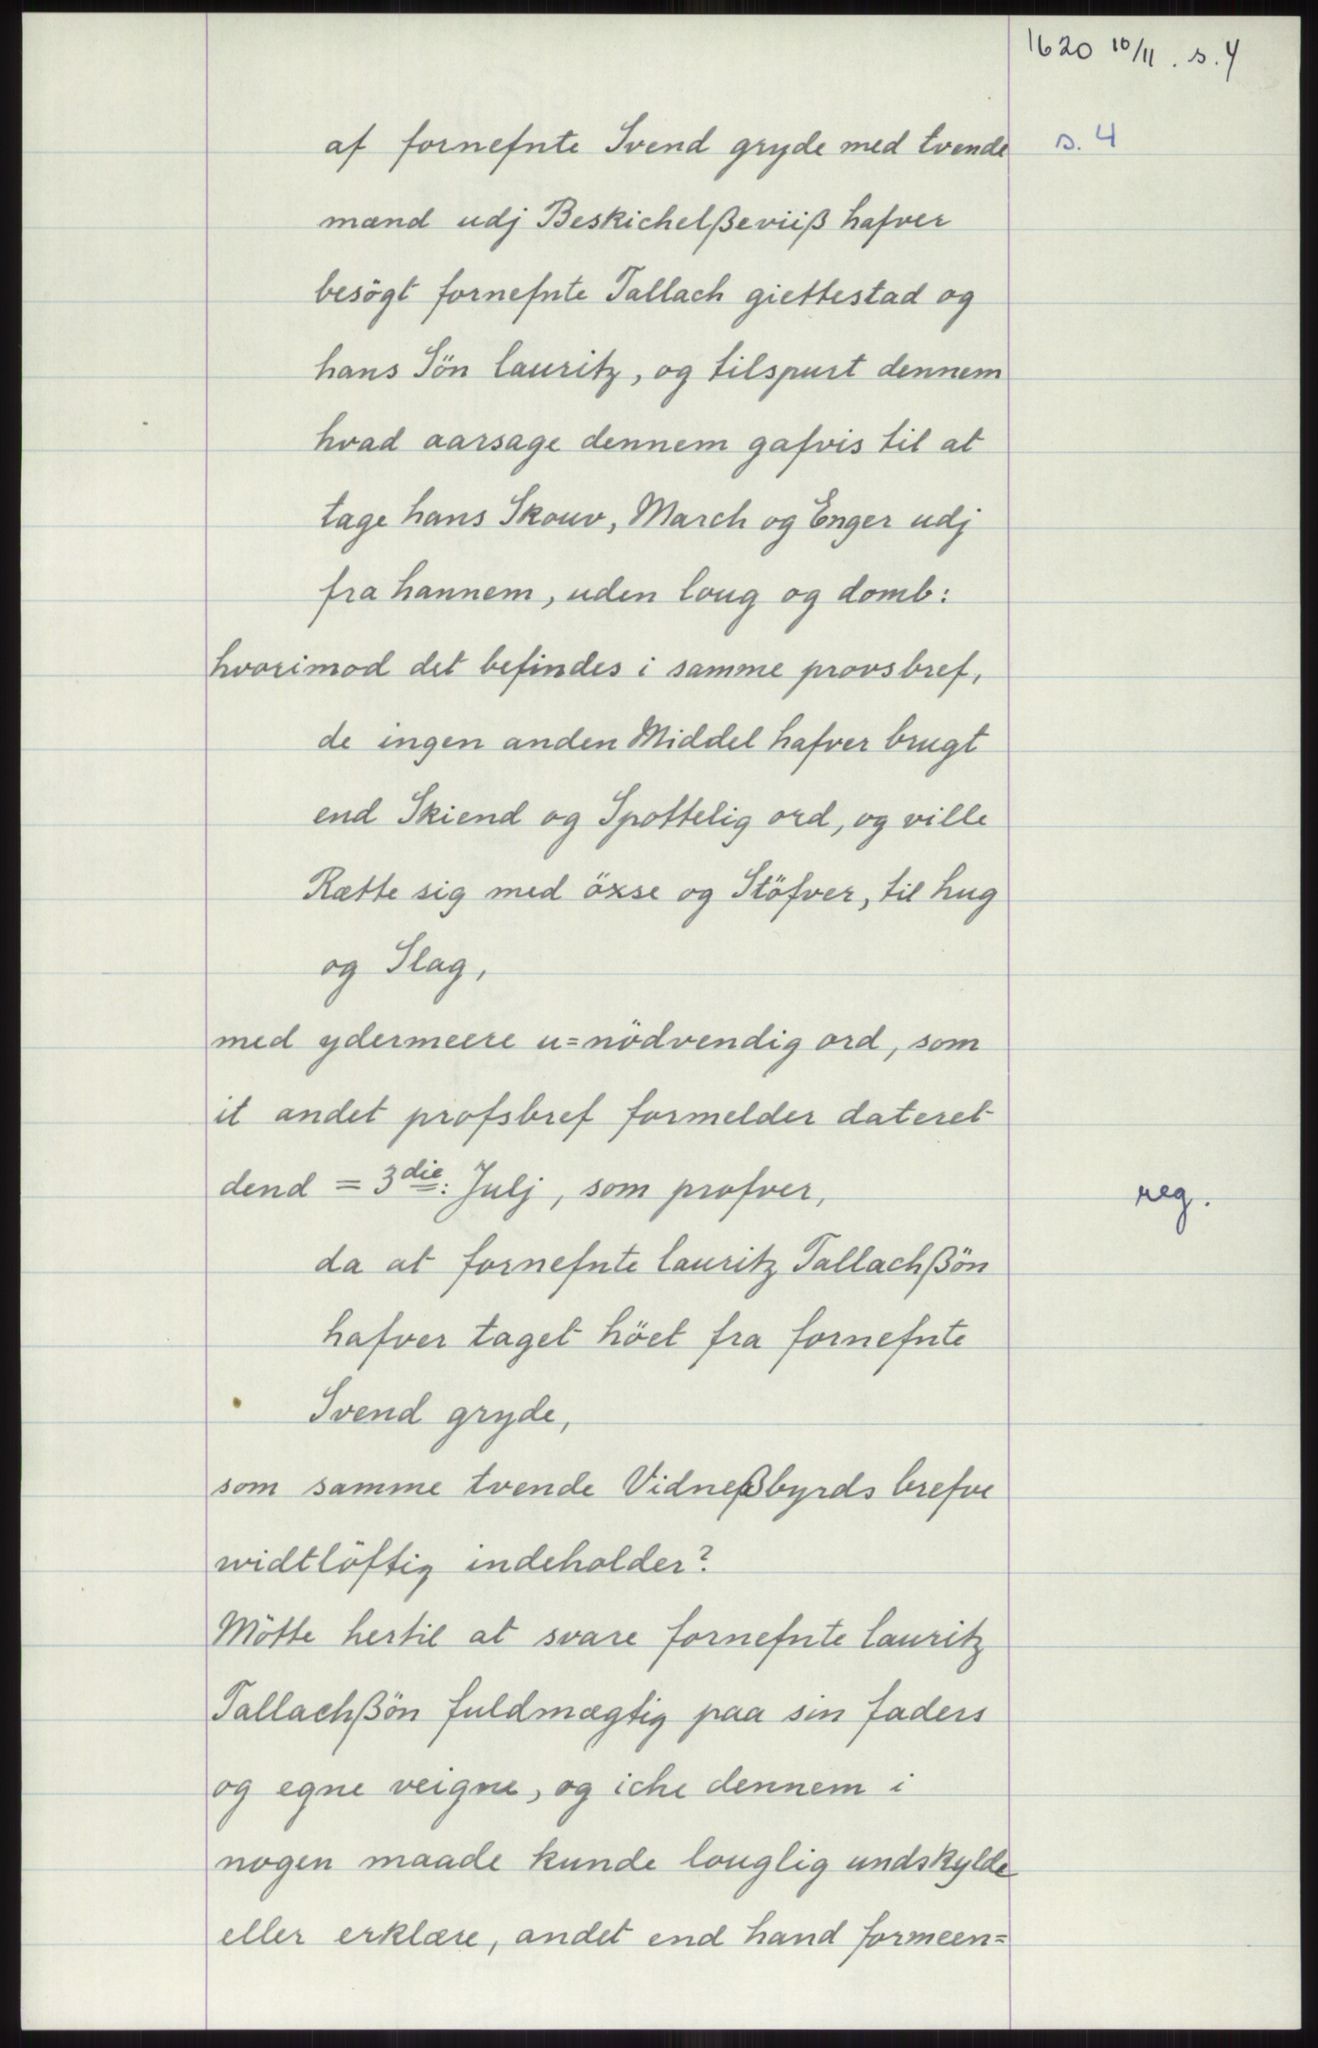 1620 10/11 . s. 4
af fornefnte Svend gryde med tvende s. 4
mænd udj Beskichelßeviiß hafver
besögt fornefnte Tallach giettestad og
hans Sön lauritz, og tilspurt dennem
hvad aarsage dennem gafvis til at
tage hans Skouv, March og Enger udj
fra hannem, uden loug og domb:
hvorimod det befindes i samme provsbref,
de ingen anden Middel hafver brugt
end Skiend og Spottelig ord, og ville
Rætte sig med öxse og Stöfver, til hug
og Slag,
med ydermeere u=nödvendig ord, som
it andet profsbref formelder dateret
dend = 3die: Julj, som profver, reg.
da at fornefnte lauritz Tallachßön
hafver taget höet fra fornefnte
Svend gryde,
som samme tvende Vidneßbyrds brefve
widtlöftig indeholder?
Mötte hertil at svare fornefnte lauritz
Tallachßön fuldmægtig paa sin faders
og egne veigne, og iche dennem i
nogen maade kunde louglig undskylde
eller erklære, andet end hand formeen=